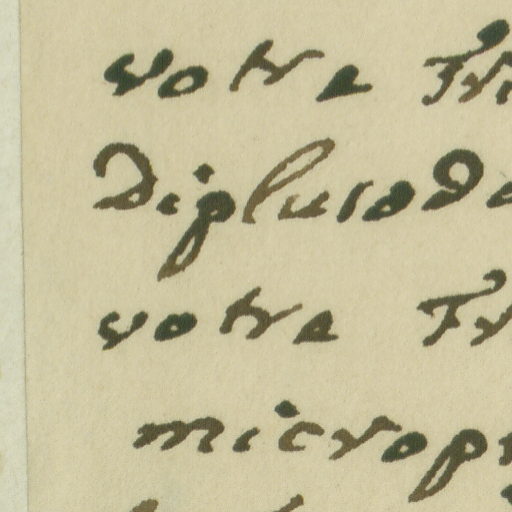 votre fr
dipluiodo
votre fr
microp